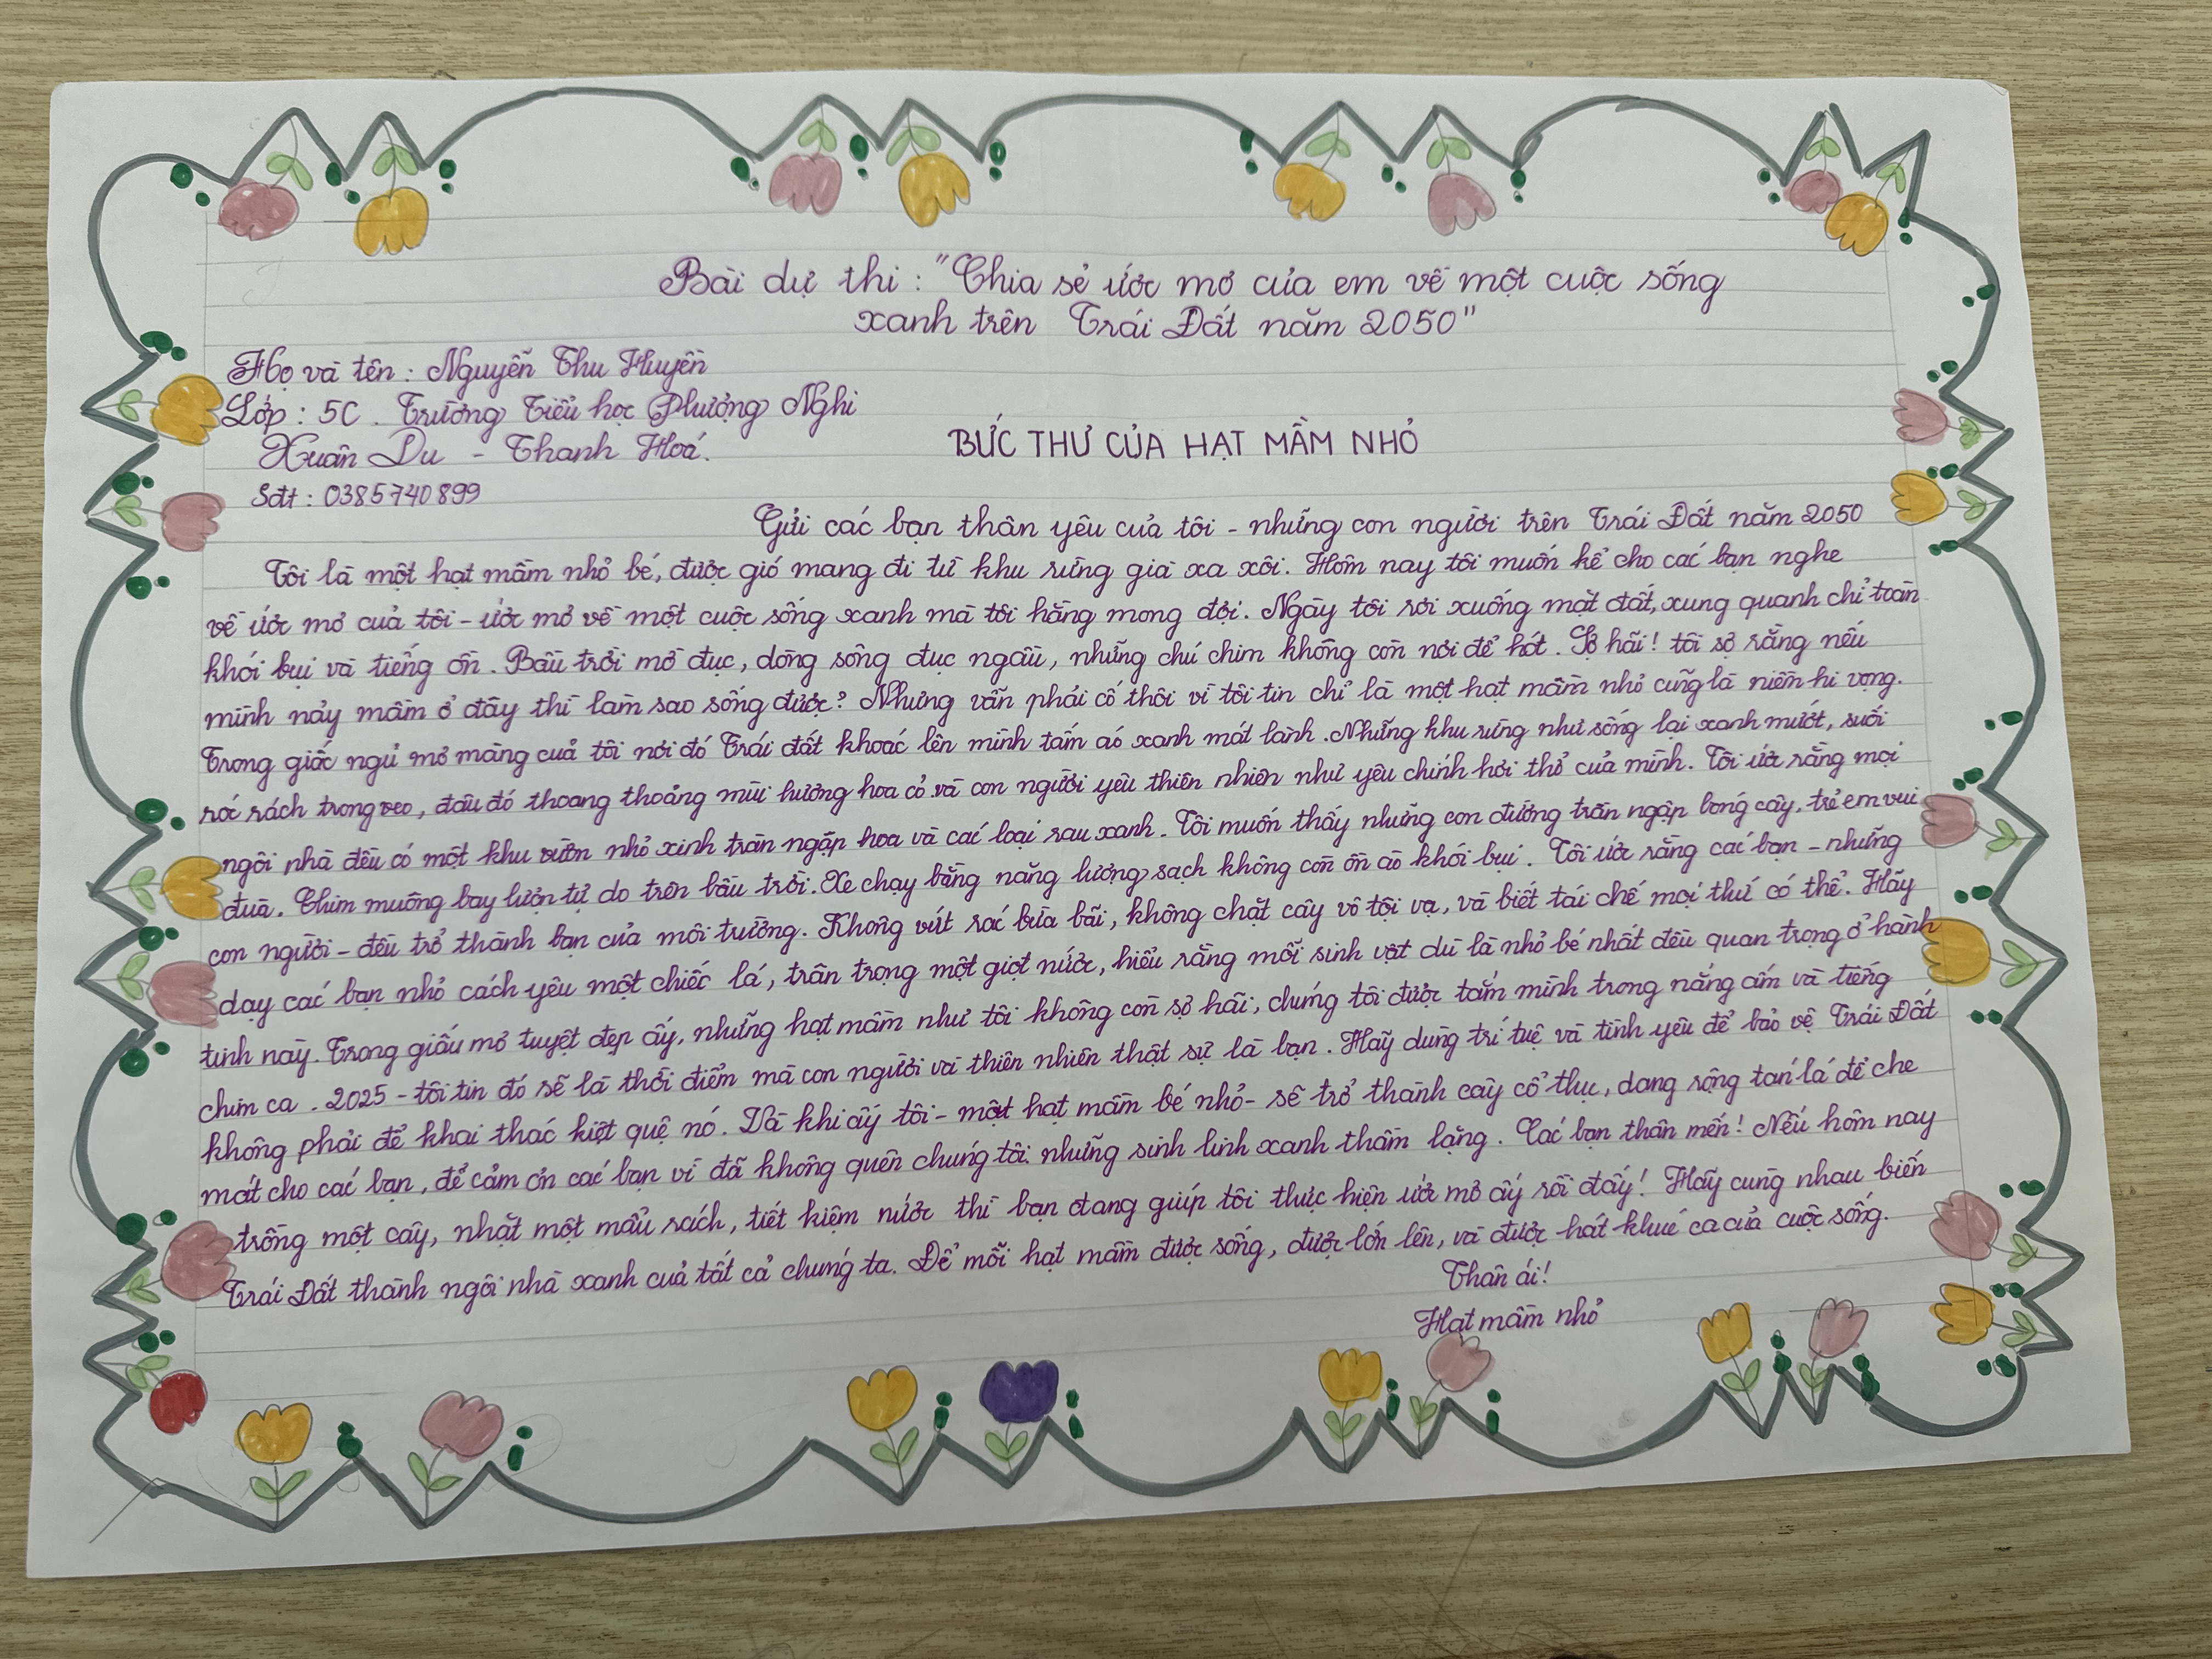 Bài dự thi : "Chia sẻ ước mơ của em về một cuộc sống
xanh trên Trái Đất năm 2050"
Họ và tên : Nguyễn Thu Huyền
Lớp : 5C . Trường Tiểu học Phượng Nghi
Xuân Du - Thanh Hoá.
Sđt : 0385740899
BỨC THƯ CỦA HẠT MẦM NHỎ
Gửi các bạn thân yêu của tôi - những con người trên Trái Đất năm 2050
Tôi là một hạt mầm nhỏ bé, được gió mang đi từ khu rừng già xa xôi. Hôm nay tôi muốn kể cho các bạn nghe
về ước mơ của tôi - ước mơ về một cuộc sống xanh mà tôi hằng mong đợi. Ngày tôi rơi xuống mặt đất, xung quanh chỉ toàn
khói bụi và tiếng ồn. Bầu trời mờ đục, dòng sông đục ngầu, những chú chim không còn nơi để hót. Sợ hãi! tôi sợ rằng nếu
mình nảy mầm ở đây thì làm sao sống được? Nhưng vẫn phải cố thôi vì tôi tin chỉ là một hạt mầm nhỏ cũng là niềm hi vọng.
Trong giấc ngủ mơ màng của tôi nơi đó Trái đất khoác lên mình tấm áo xanh mát lành. Những khu rừng như sống lại xanh mướt, suối
róc rách trong veo, đâu đó thoang thoảng mùi hương hoa cỏ và con người yêu thiên nhiên như yêu chính hơi thở của mình. Tôi ước rằng mọi
ngôi nhà đều có một khu vườn nhỏ xinh tràn ngập hoa và các loại rau xanh. Tôi muốn thấy những con đường tràn ngập bóng cây, trẻ em vui
đùa. Chim muông bay lượn tự do trên bầu trời. Xe chạy bằng năng lượng sạch không còn ồn ào khói bụi. Tôi ước rằng các bạn - những
con người - đều trở thành bạn của môi trường. Không vứt rác bừa bãi, không chặt cây vô tội vạ, và biết tái chế mọi thứ có thể. Hãy
dạy các bạn nhỏ cách yêu một chiếc lá, trân trọng một giọt nước, hiểu rằng mỗi sinh vật dù là nhỏ bé nhất đều quan trọng ở hành
tinh này. Trong giấu mơ tuyệt đẹp ấy, những hạt mầm như tôi không còn sợ hãi, chúng tôi được tắm mình trong nắng ấm và tiếng
chim ca . 2025 - tôi tin đó sẽ là thời điểm mà con người và thiên nhiên thật sự là bạn. Hãy dùng trí tuệ và tình yêu để bảo vệ Trái Đất
không phải để khai thác kiệt quệ nó. Và khi ấy tôi - một hạt mầm bé nhỏ - sẽ trở thành cây cổ thụ, dang rộng tán lá để che
mát cho các bạn, để cảm ơn các bạn vì đã không quên chúng tôi những sinh linh xanh thầm lặng. Các bạn thân mến! Nếu hôm nay
trồng một cây, nhặt một mẩu rách, tiết kiệm nước thì bạn đang giúp tôi thực hiện ước mơ ấy rồi đấy! Hãy cùng nhau biến
Trái Đất thành ngôi nhà xanh của tất cả chúng ta. Để mỗi hạt mầm được sống, được lớn lên, và được hát khúc ca của cuộc sống.
Thân ái!
Hạt mầm nhỏ